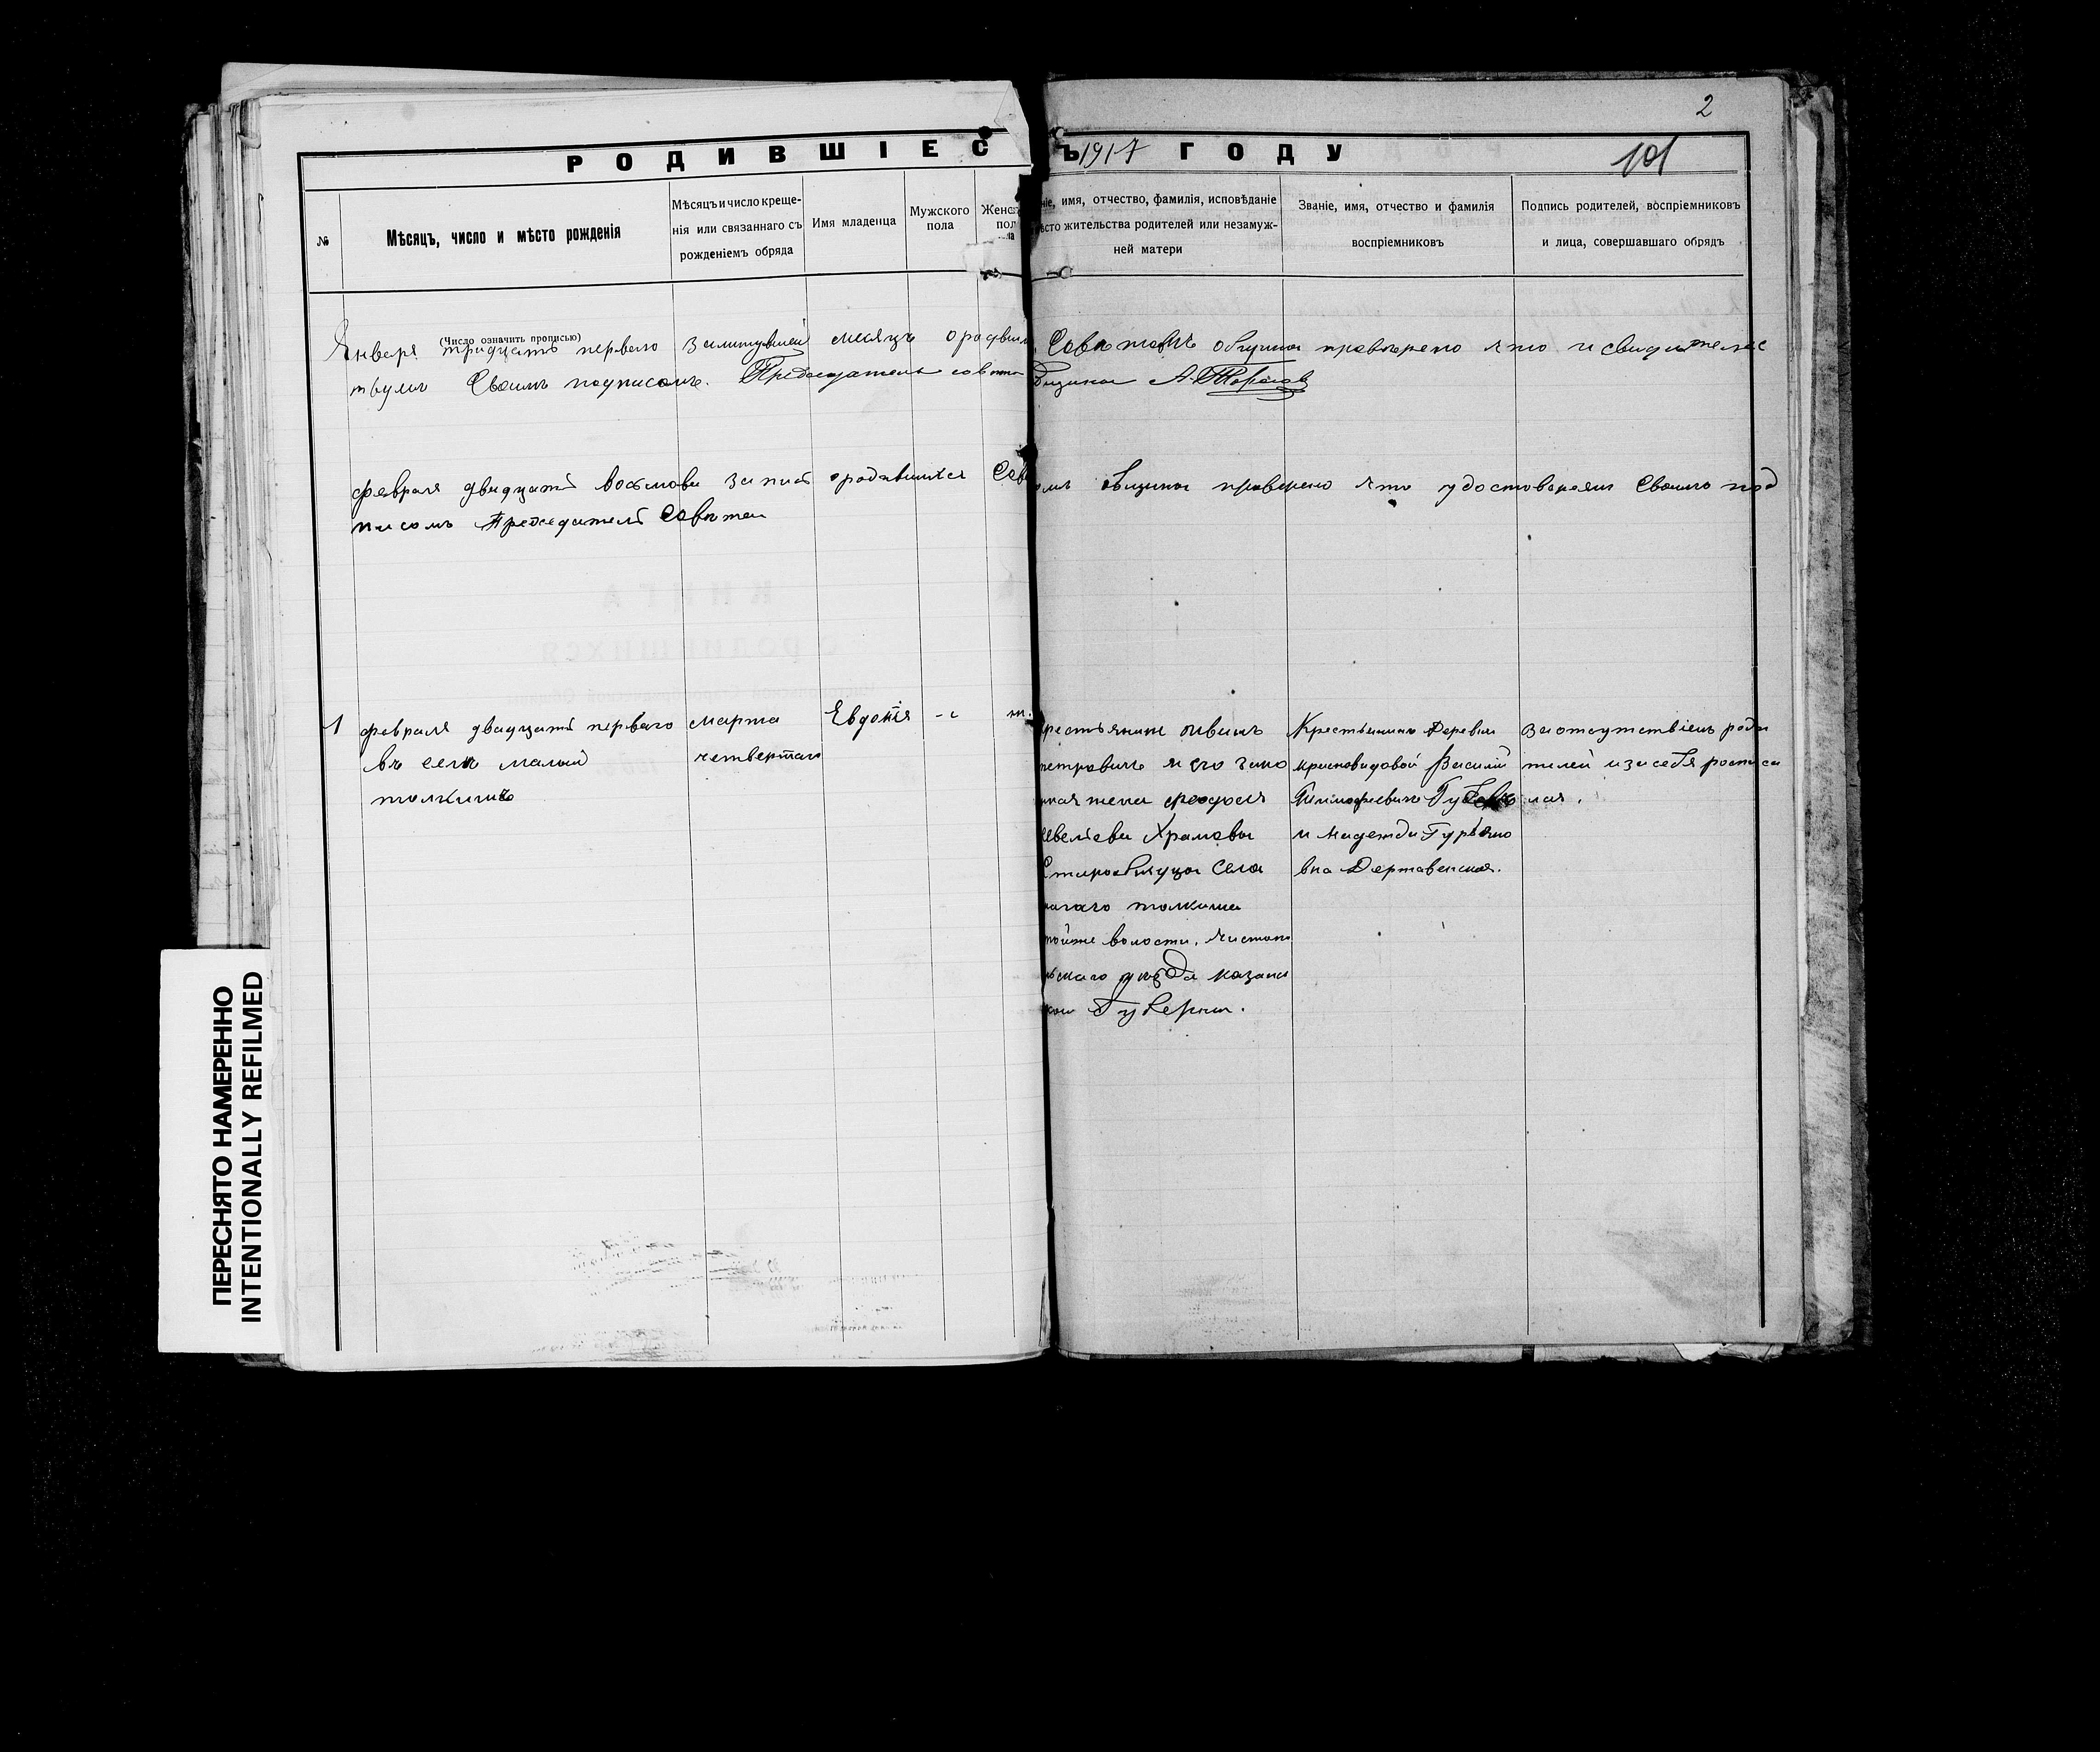 2
РОДИВШІЕС Ъ 1917 ГОДУ
101
№
Мѣсяцъ, число и мѣсто рожденія
Мѣсяцъ и число креще-
нія или связаннаго съ
рожденіемъ обряда
Имя младенца
Мужского
пола
Женс
пол
ніе, имя, отчество, фамилія, исповѣданіе
сто жительства родителей или незамуж-
ней матери
Званіе, имя, отчество и фамилія
воспріемниковъ
Подпись родителей, воспріемниковъ
и лица, совершавшаго обрядъ
(Число означить прописью)
Января тридцать первого месяцъ Советомъ общины проверено что и свидетелс
твуемъ Своимъ подписомъ. Председатель совета
февраля двадцать восьмова запис ородившихся Сове
омъ общины проверено что удостоверяем Своимъ под
писомъ Председатель Совета
1
февраля двадцать перваго
въ селе малый
толкишъ
марта
четвертаго
Евдокія
ж.
рестьянинъ
петровичъ и его зако
ная жена феодосия
Храмовы
Старообрядцы Села
толкиша
тойже волости. Чистопо
ьскаго уезда казанс
кой Губернии.
Крестьянинъ Деревни
красновидовой Василий
Тимофеевичъ
и Надежда Гурьяно
вна Державенская.
Заотсутствіемъ роди
телей изасебя росписа
лся.
ПЕРЕСНЯТО НАМЕРЕННО
INTENTIONALLY REFILMED